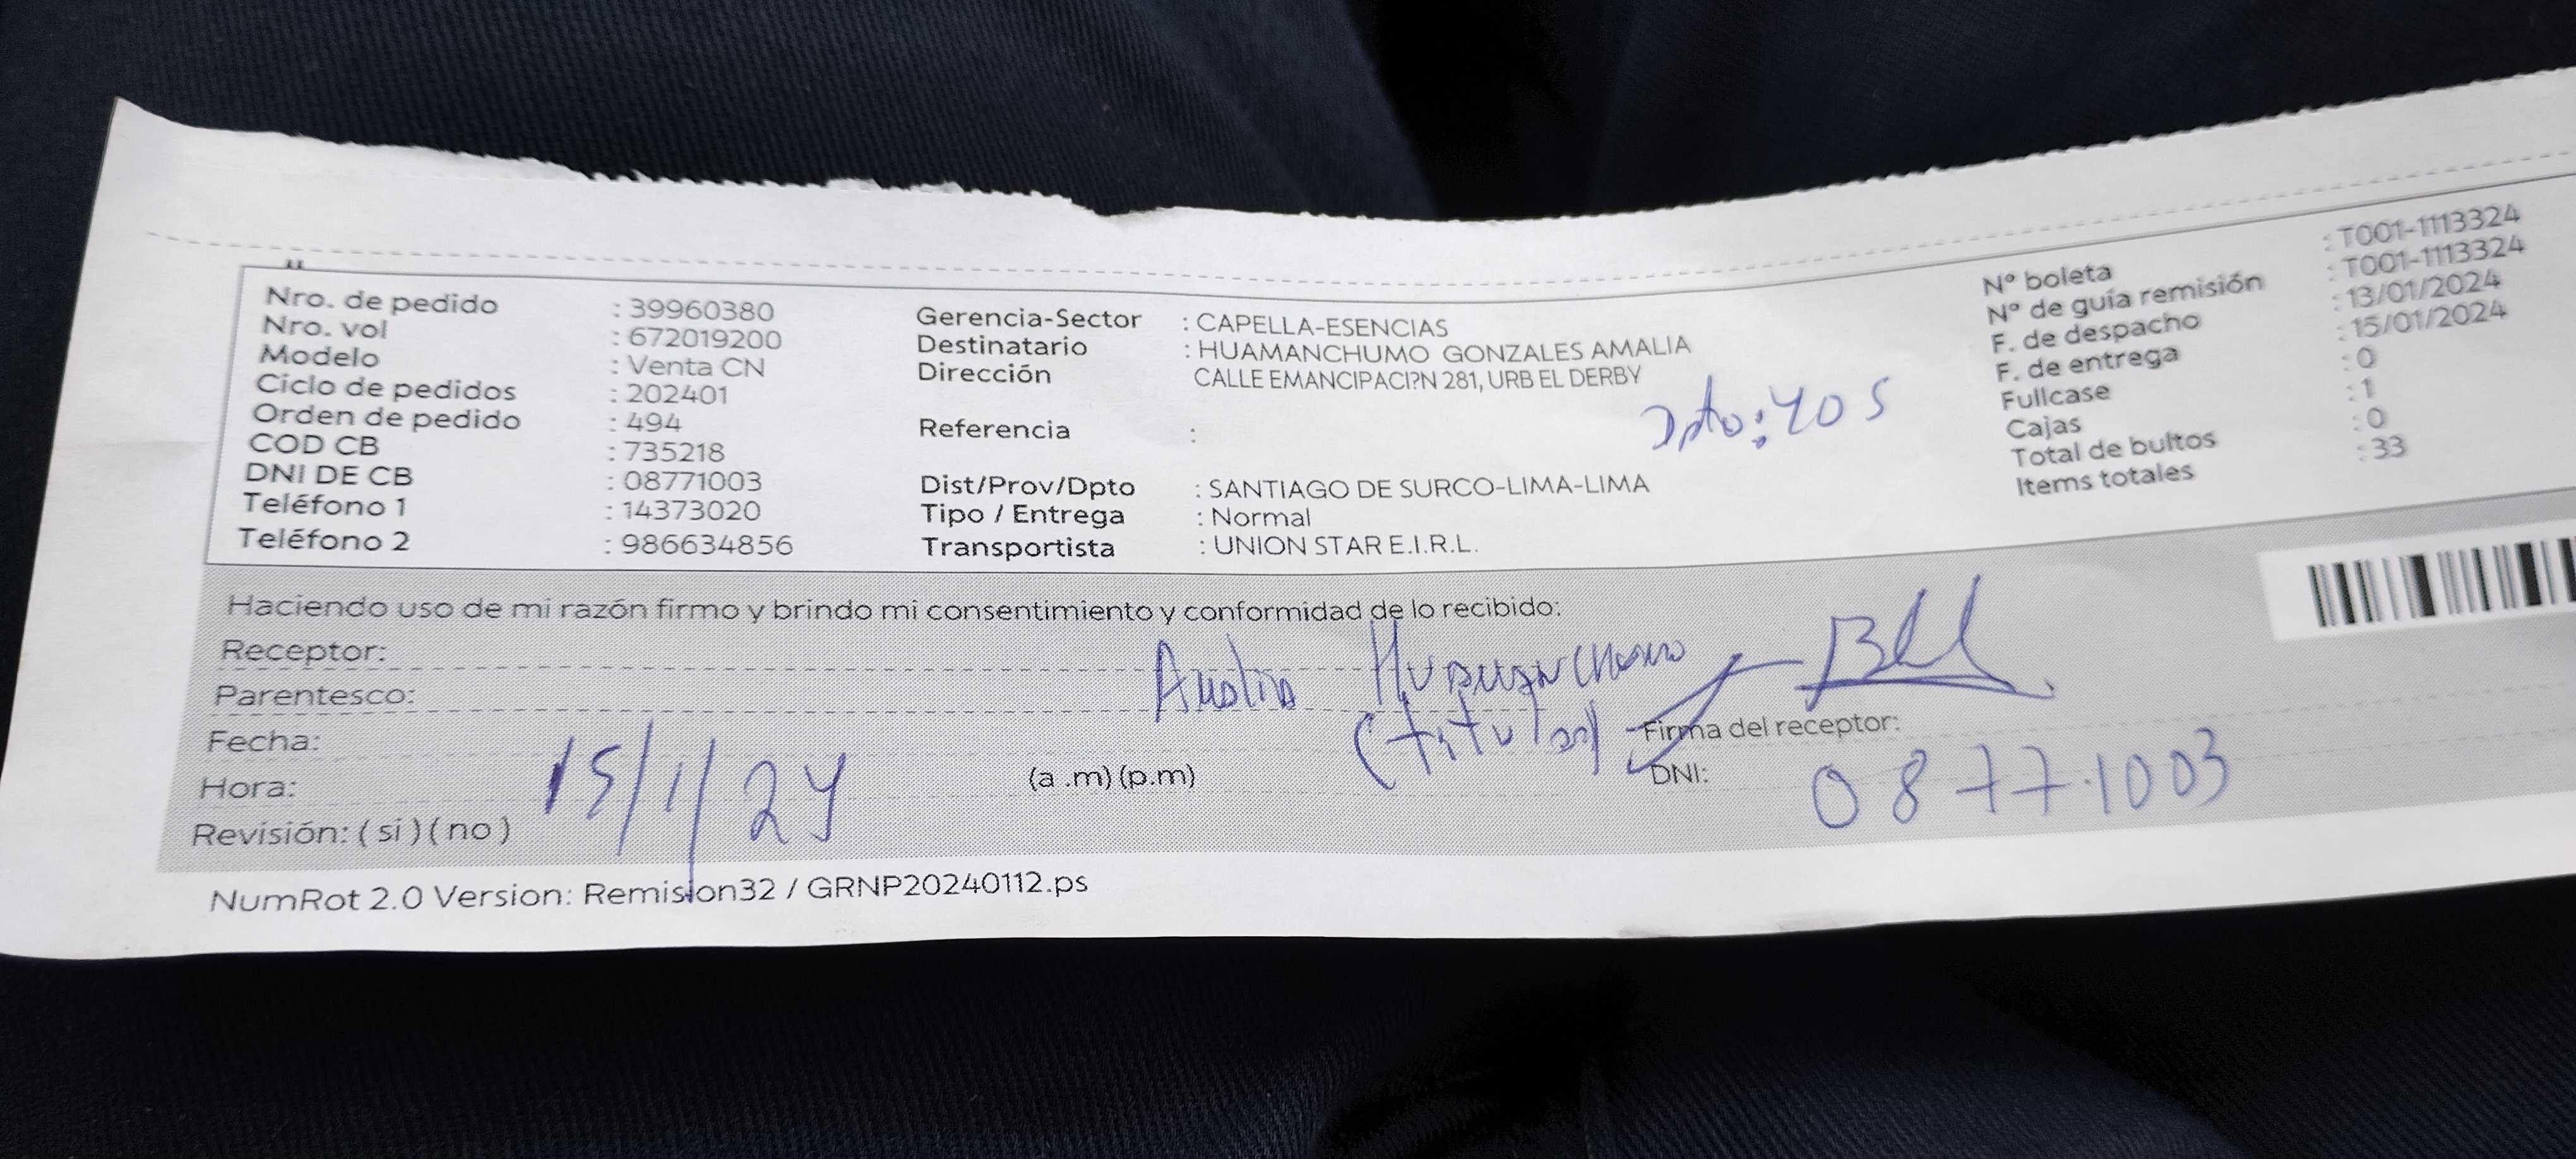 Nro. de pedido : 39960380
Nro. vol : 672019200
Modelo : Venta CN
Ciclo de pedidos : 202401
Orden de pedido : 494
COD CB : 735218
DNI DE CB : 08771003
Teléfono 1 : 14373020
Teléfono 2 : 986634856
Gerencia-Sector : CAPELLA-ESENCIAS
Destinatario : HUAMANCHUMO GONZALES AMALIA
Dirección CALLE EMANCIPACI?N 281, URB EL DERBY
Dpto: 405
Referencia :
Dist/Prov/Dpto : SANTIAGO DE SURCO-LIMA-LIMA
Tipo / Entrega : Normal
Transportista : UNION STAR E.I.R.L.
Nº boleta : T001-1113324
Nº de guía remisión : T001-1113324
F. de despacho : 13/01/2024
F. de entrega : 15/01/2024
Fullcase : 0
Cajas : 1
Total de bultos : 0
Items totales : 33
Haciendo uso de mi razón firmo y brindo mi consentimiento y conformidad de lo recibido:
Receptor: Amalia Huamanchumo
Parentesco: (titular)
Firma del receptor:
Fecha: 15/1/24
Hora: (a .m) (p.m)
DNI: 08771003
Revisión: ( si ) ( no )
NumRot 2.0 Version: Remision32 / GRNP20240112.ps